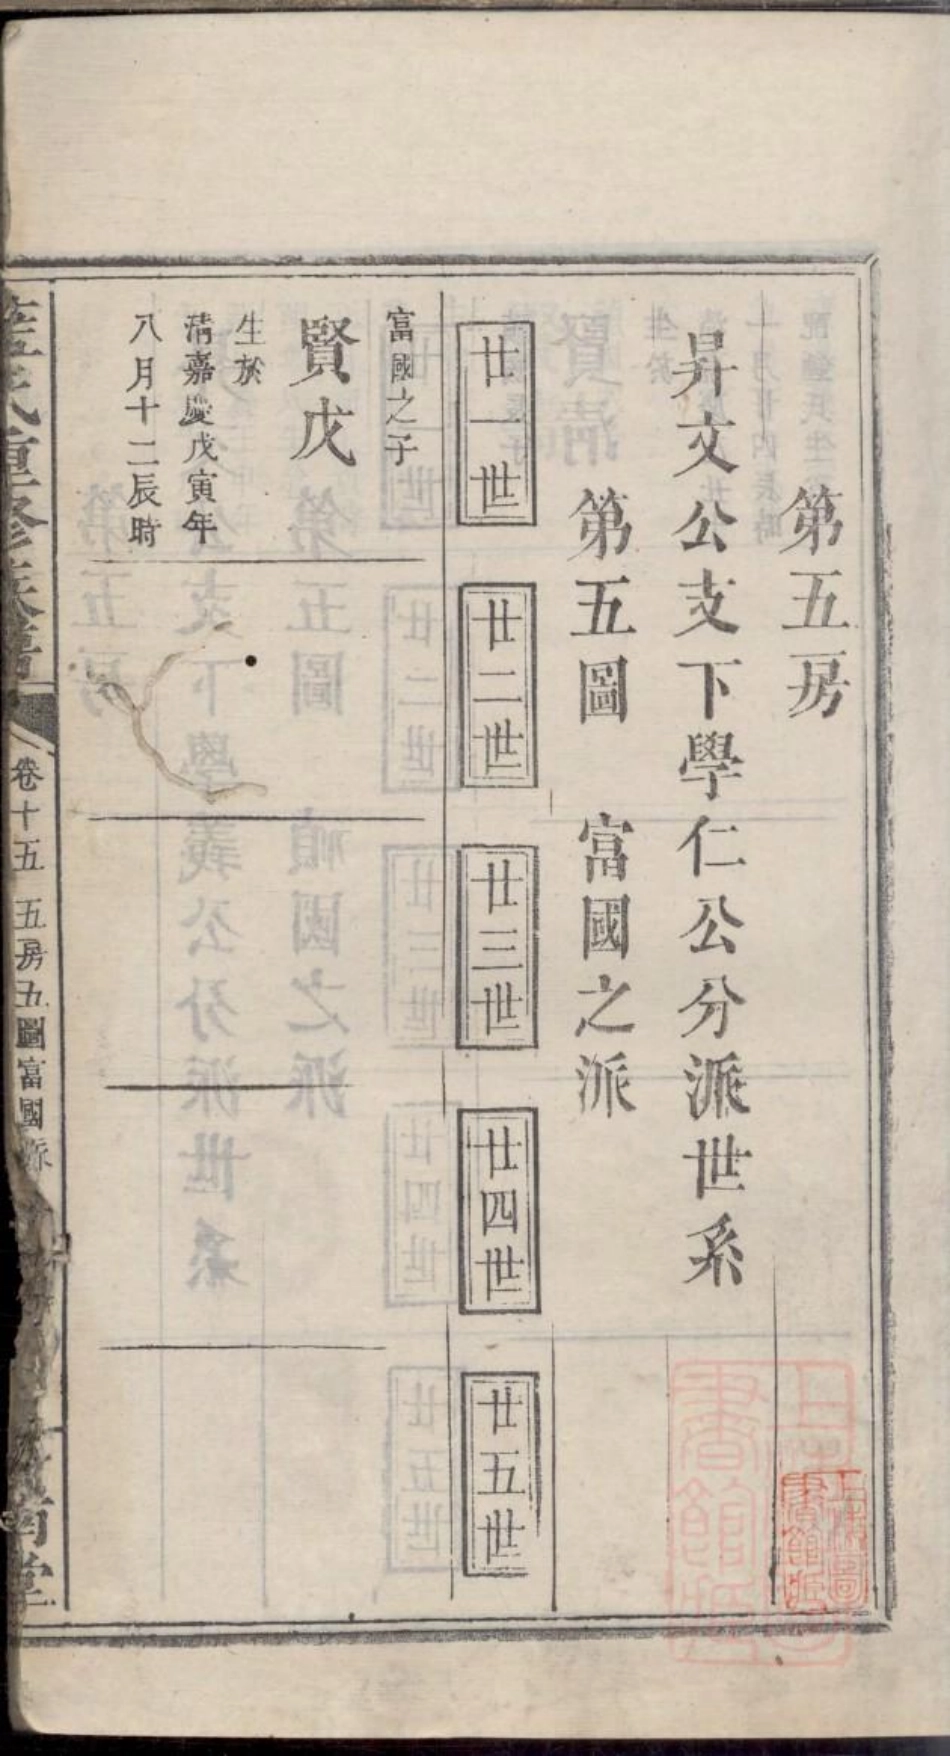 第五房
昇文公支下學仁公分派世系
第五圖 富國之派
廿一世
廿二世
廿三世
廿四世
廿五世
富國之子
賢戊
生於
清嘉慶戊寅年
八月十二辰時
氏重修族譜
卷十五 五房五圖富國派
堂